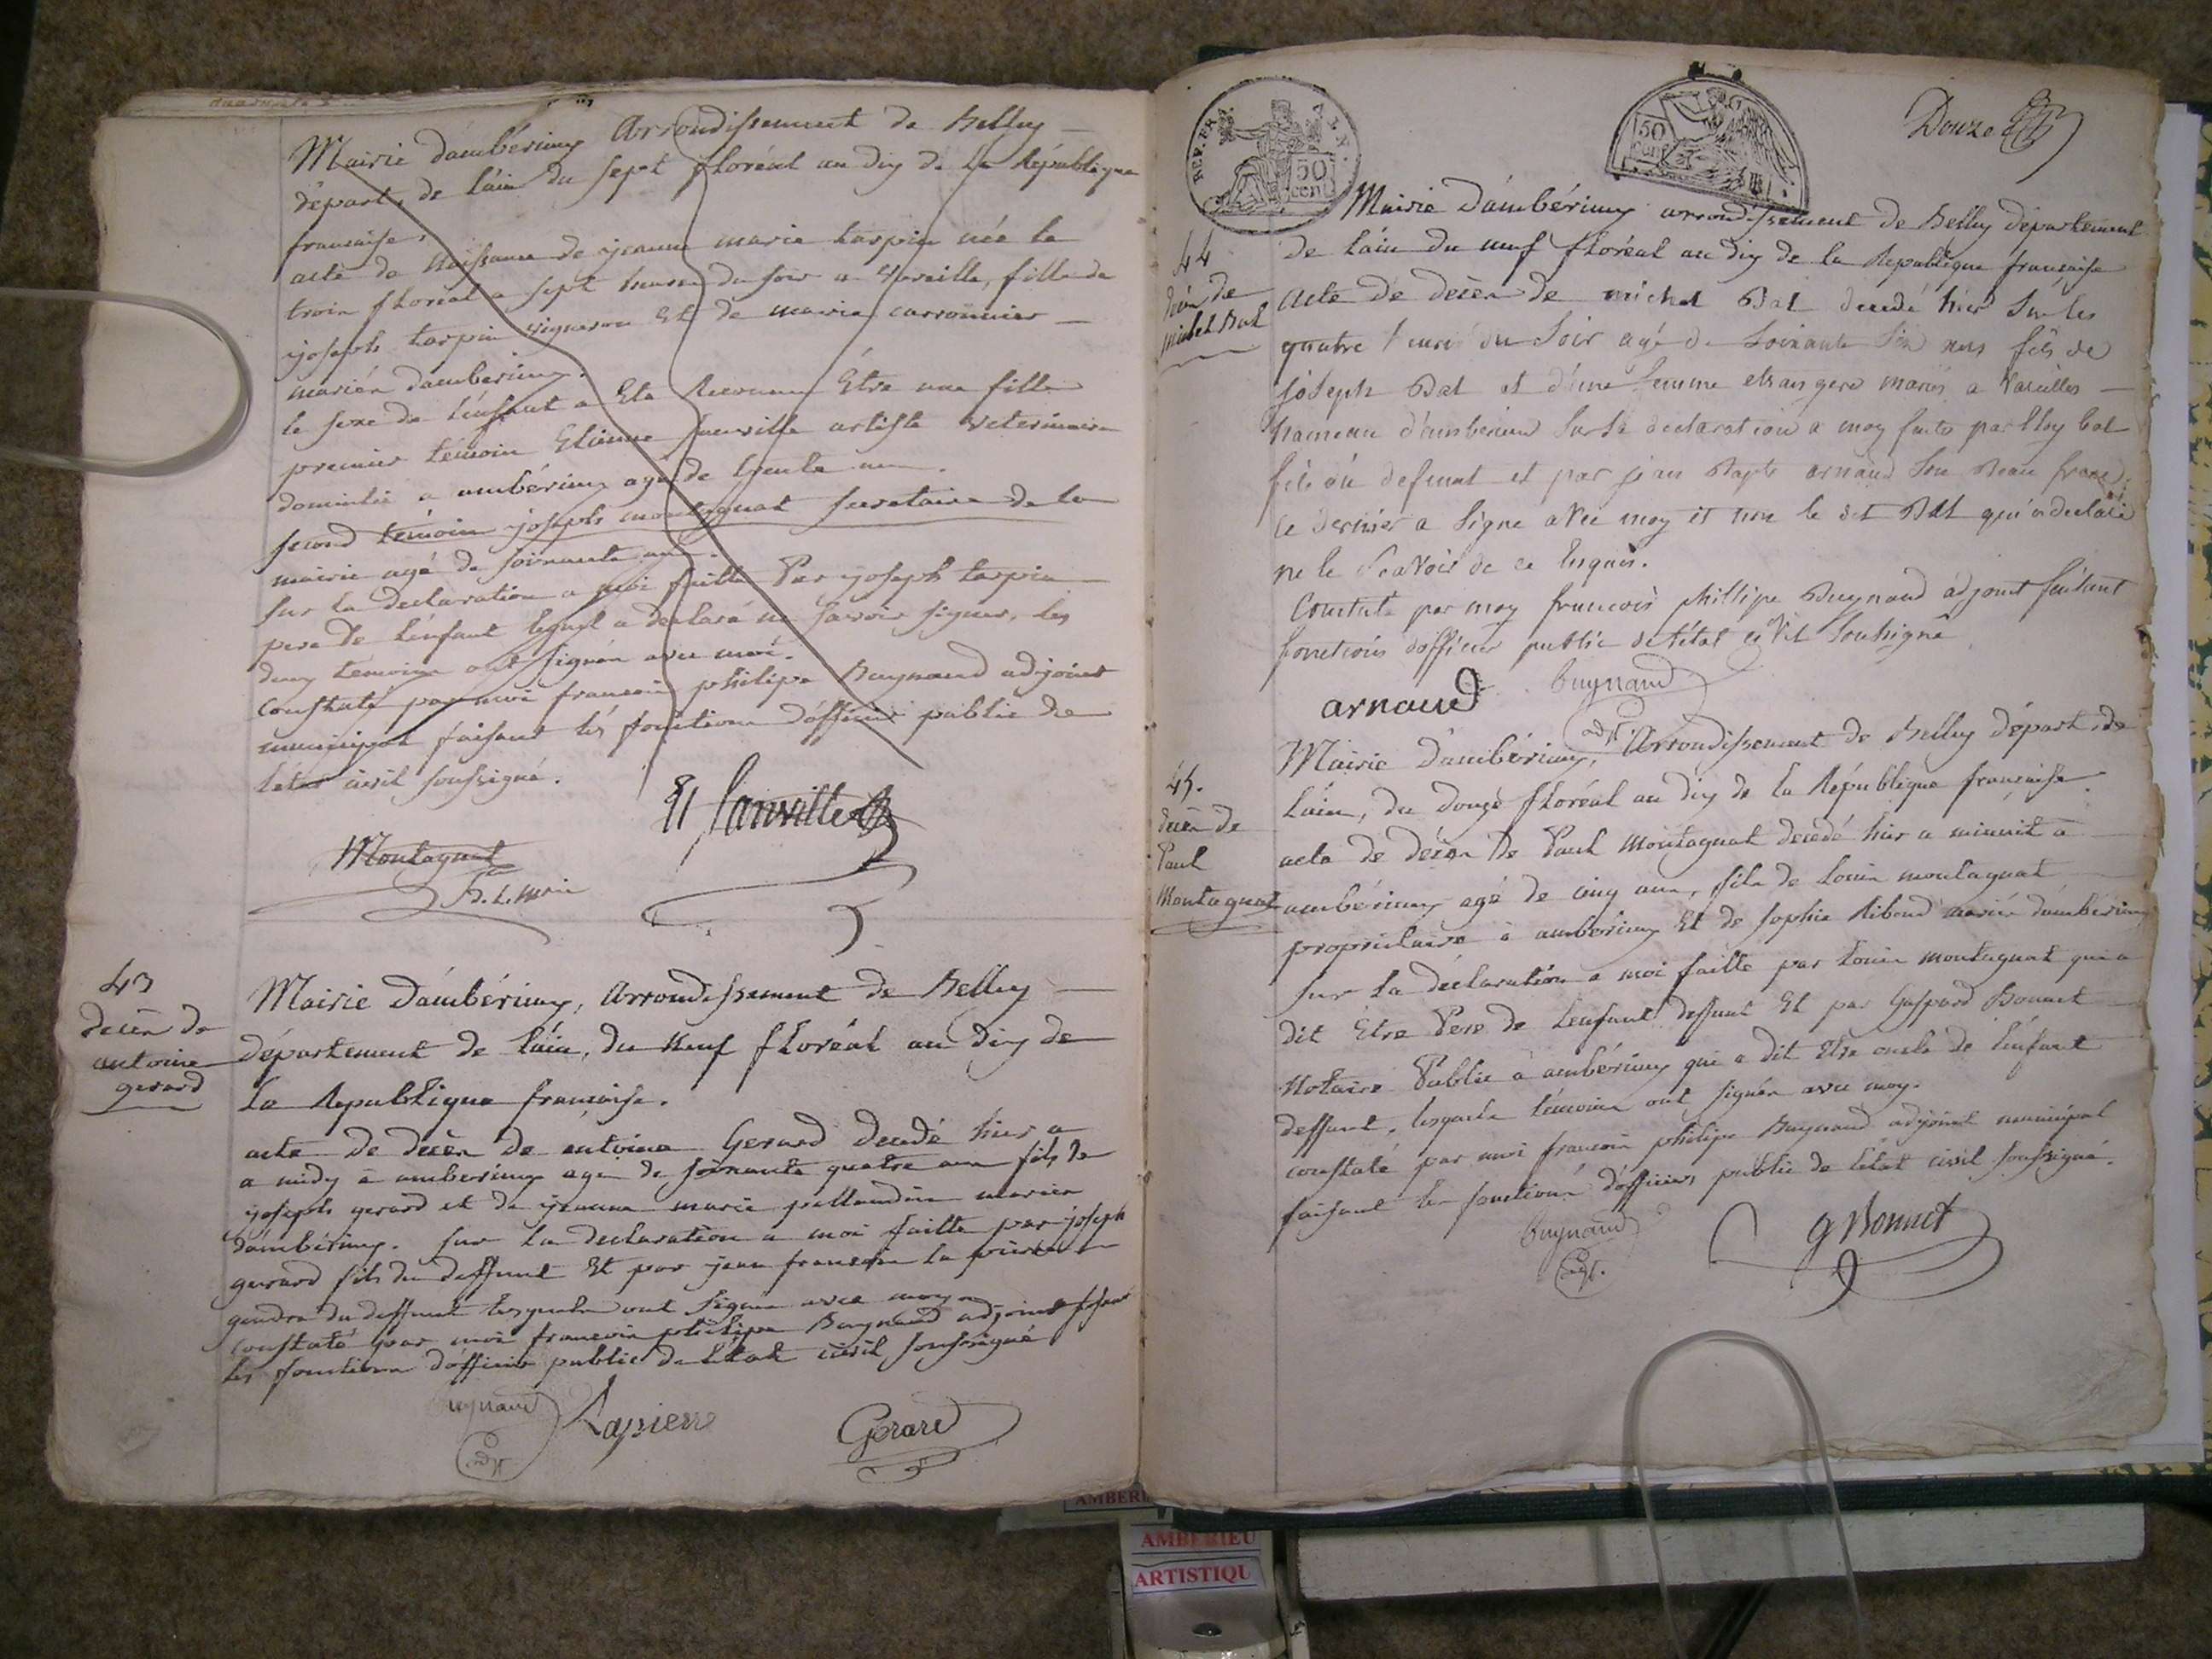 Mairie d'ambérieux Arrondissement de Belley
départ. de l'ain du sept floréal an dix de la République
francaise,
acte de Naissance de jeanne marie tarpin née le
trois floréal a sept heures du soir a Vareille, fille de
joseph tarpin vigneron Et de marie carronnier
mariés d'amberieux.
le sexe de l'enfant a Eté Reconnu Être une fille
premier témoin Etienne artiste veterinaire
domicilié a ambérieux agé de trente
second témoin joseph montagnat secretaire de la
mairie agé de soixante ans.
sur la declaration a moi faitte Par joseph tarpin
pere de l'enfant lequel a declaré ne savoir signer, les
deux temoins ont signés avec moi.
Constaté par moi francois philipe Buynand adjoint
municipal faisant les fonctions d'officier public de
l'état civil soussigné.
Montagnat
43
décès de
antoine
gerard
Mairie d'ambérieux, arrondissement de Belley
département de l'ain, du Neuf floréal an dix de
la Republique francaise.
acte de décès de antoine Gerard decedé hier a
a midy a amberieux agé de soixante quatre ans fils de
joseph gerard et de jeanne marie mariés
d'ambérieux. sur la declaration a moi faitte par joseph
gerard fils du deffunt Et par jean francois la pierre
gendre du deffunt lesquels ont signés avec moy
constaté par moi francois philipe Buynand adjoint fesant
les fonctions d'officier public de l'état civil soussigné
buynand
adjt
Lapierre
Gerard
REP. FRA.
50
cent
50
cent
Douze
44
décès de
michel Bal
Mairie d'ambérieux arrondissement de Belley département
de l'ain du neuf floréal an dix de la Republique française
acte de décès de michel Bal decedé hier sur les
quatre heures du soir agé de soixante six ans fils de
joseph Bal et d'une femme etrangere mariés a Vareilles
hameau d'amberieux sur la declaration a moy faite par bal
fils du defunt et par jean Bapte arnaud son Beau frere
ce dernier a signe avec moy et non le dit Bal qui a declaré
ne le scavoir de ce Enquis.
Constaté par moy francois phillipe Buynand adjoint faisant
fonctions d'officier public de l'état civil soussigné
arnaud
buynand
adjt.
45.
décès de
Paul
Montagnat
Mairie d'ambérieux, Arrondissement de Belley départ. de
l'ain, du douze floréal an dix de la République française.
acte de décès de Paul montagnat decedé hier a minuit a
ambérieux agé de cinq ans, fils de Louis montagnat
propriétaire à amberieux Et de sophie Riboud mariés d'ambérieux
sur la déclaration a moi faitte par Louis montagnat qui a
dit Être Pere de l'enfant deffunt Et par Gaspard Bonnet
Notaire Public a ambérieux qui a dit Être oncle de l'enfant
deffunt, lesquels témoins ont signés avec moy.
constaté par moi francois philipe Buynand adjoint municipal
faisant les fonctions d'officier public de l'état civil soussigné.
buynand
adjt.
g Bonnet
AMBERIEU
ARTISTIQU